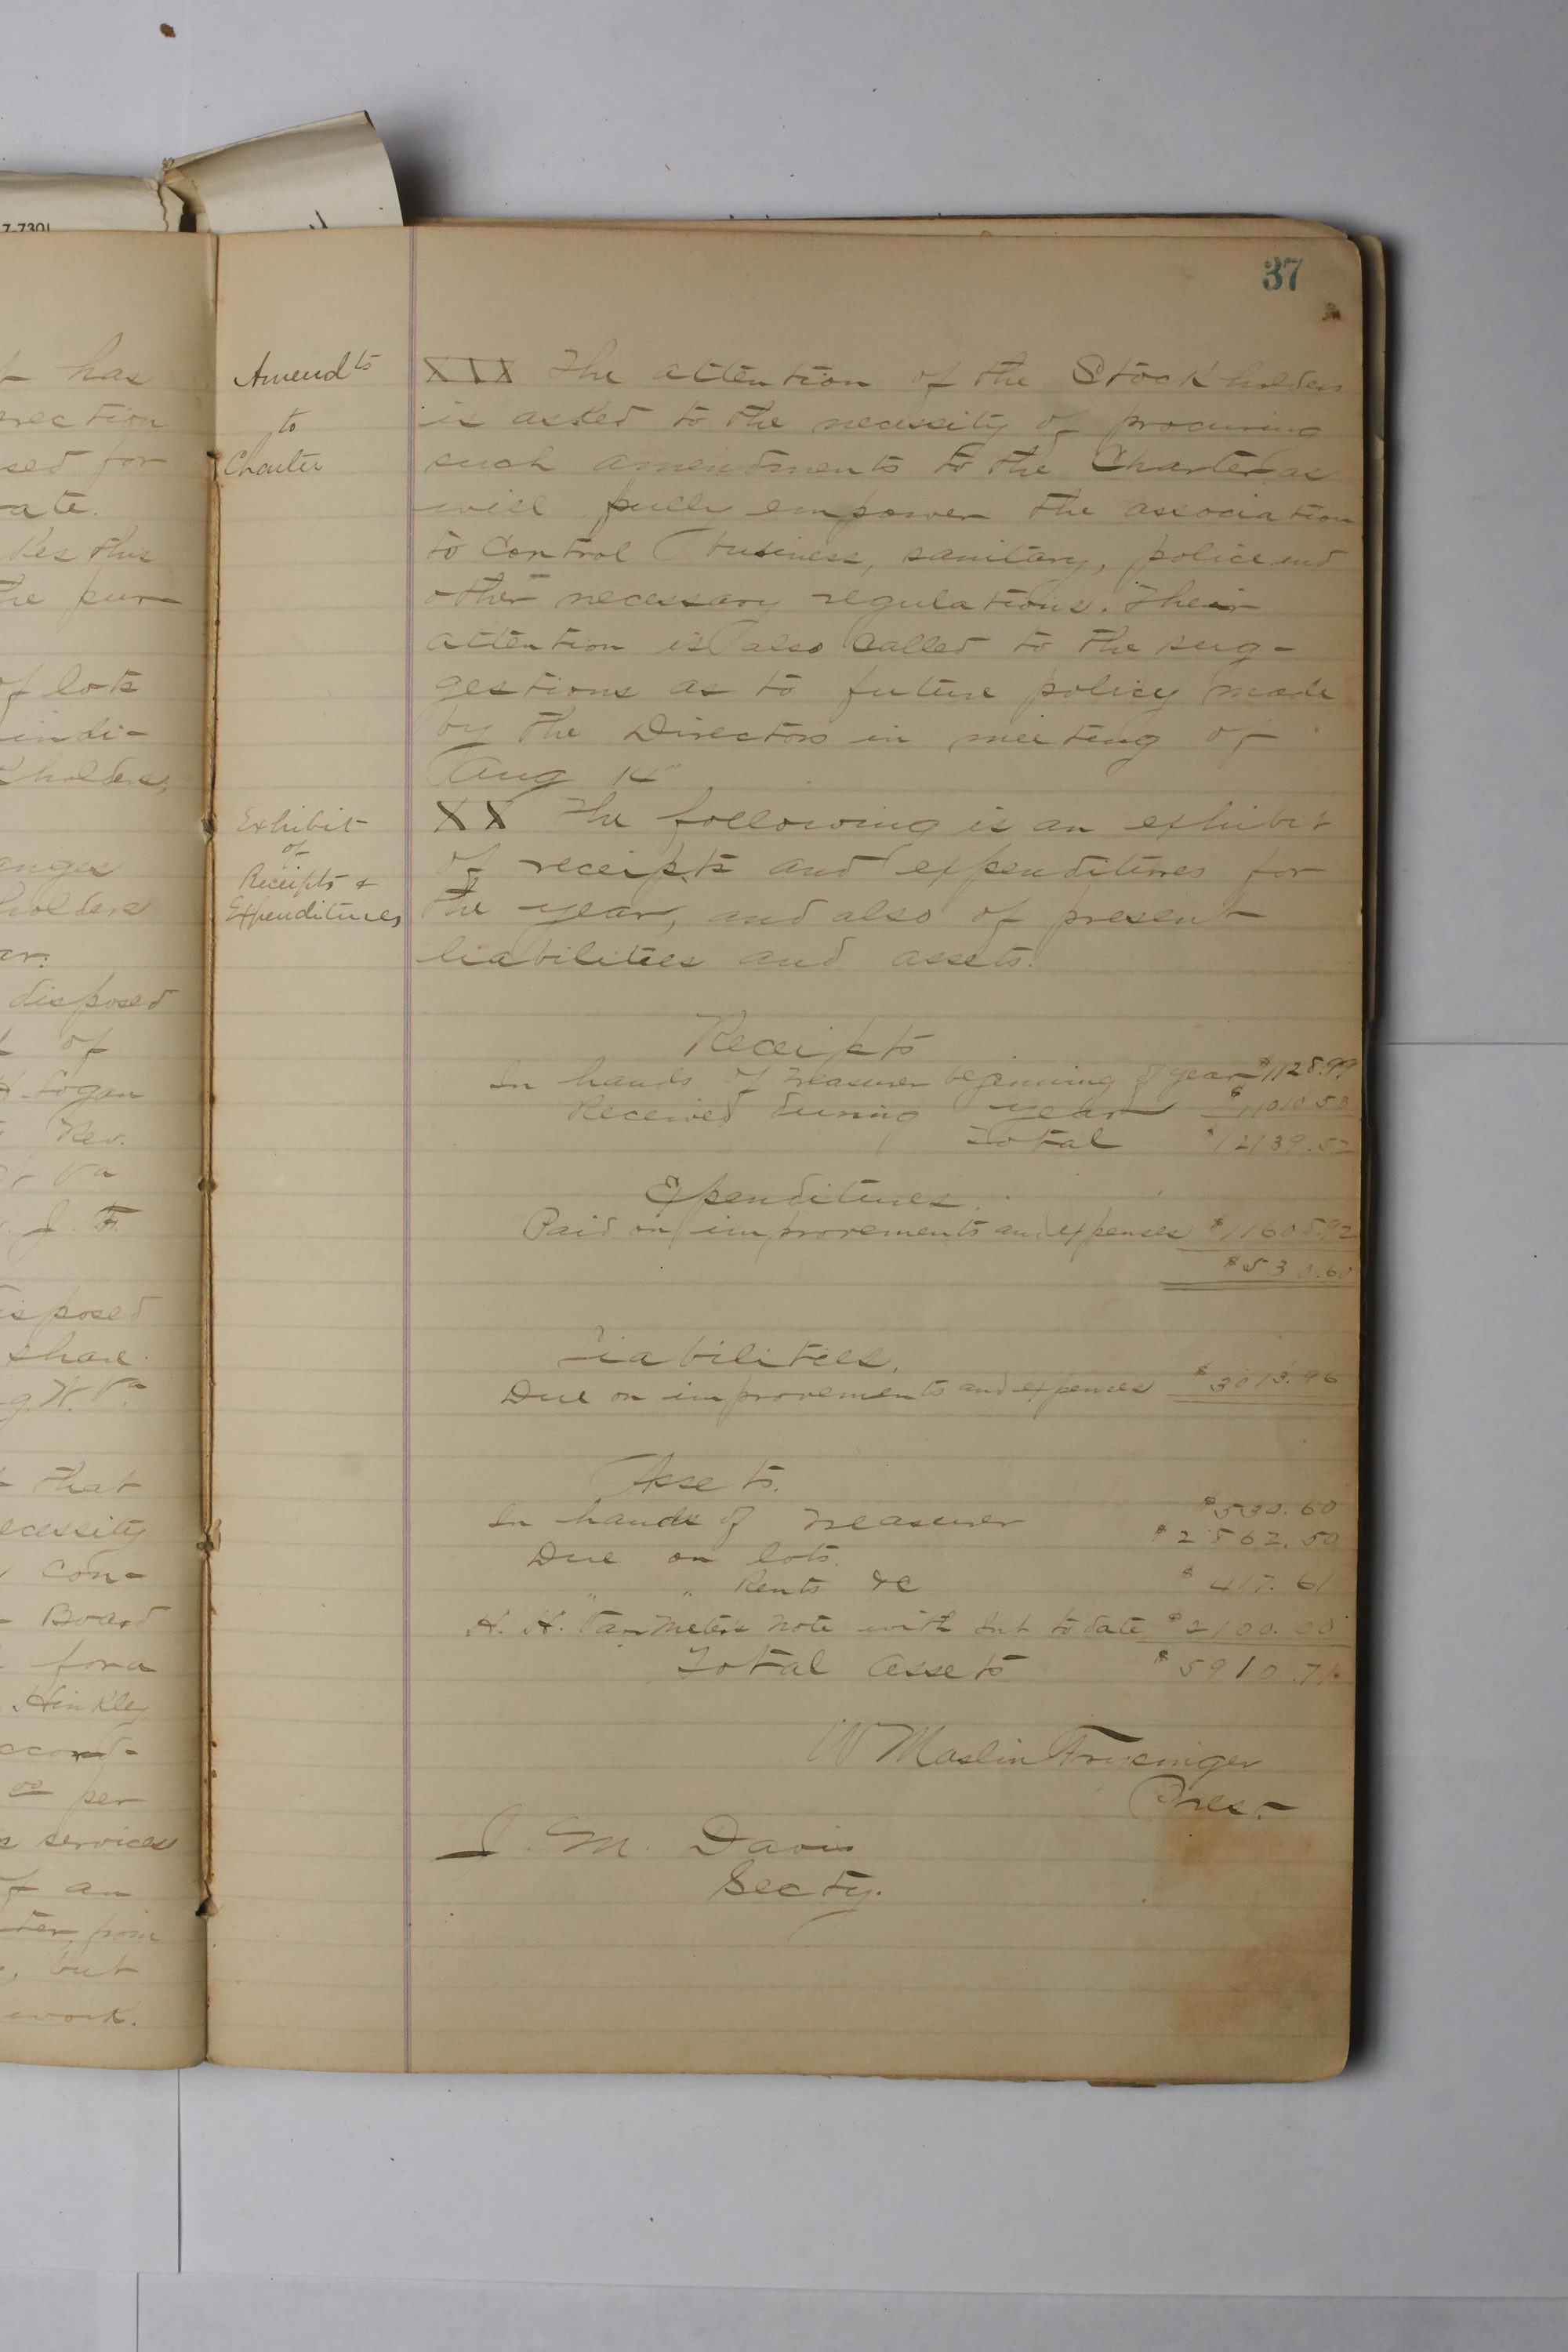 7-7301
37
has
rection
sed for
ate.
kes this
the pur-
of lots
indi-
holders,
anges
holders
ar.
disposed
of
H. Logan
Rev.
Va
J. F.
isposed
share.
g. W. Va
that
ecessity
Con-
Board
for a
Hinkley
ccord-
00 per
services
of an
ter, from
, but
work.
Amendts
to
Charter
XIX The attention of the Stockholders
is asked to the necessity of procuring
such amendments to the Charter as
will fully empower the association
to Control business, sanitary, police and
other necessary regulations. Their
attention is also called to the sug-
gestions as to future policy made
by the Directors in meeting of
Aug
Exhibit
of
Receipts &
Expenditures
XX The following is an exhibit
of receipts and expenditures for
the year, and also of present
liabilities and assets.
Receipts
In hands of Treasurer beginning of year $1128.99
Received during year $11010 53
Total $12139.52
Expenditures.
Paid on improvements and expenses $11608.92
$530.60
Liabilities.
Due on improvements and expenses $3013.96
Assets.
In hands of Treasurer $530.60
Due on lots. $2562.50
" " Rents &c $417.61
H. H. VanMeter's note with Int to date $2100.00
Total Assets $5910.71
W Maslin Frysinger
Prest
J. M. Davis
Secty.